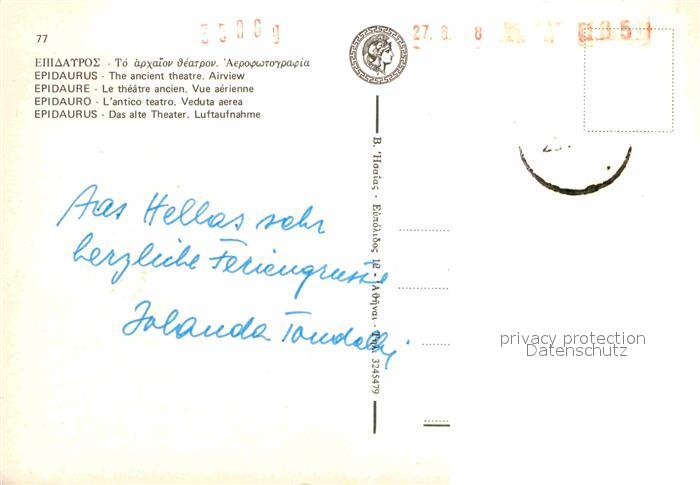 77
ΕΠΙΔΑΥΡΟΣ - Τό ἀρχαῖον θέατρον. Ἀεροφωτογραφία
EPIDAURUS - The ancient theatre. Airview
EPIDAURE - Le théâtre ancien. Vue aérienne
EPIDAURO - L'antico teatro. Veduta aerea
EPIDAURUS - Das alte Theater. Luftaufnahme
27. 8. 8
Β. Ἡσαΐας - Εὐπόλιδος 12 - Ἀθῆναι - Τηλ. 3245479
Aas Hellas sehr
herzliche Feriengrüsse
Jolanda
privacy protection
Datenschutz